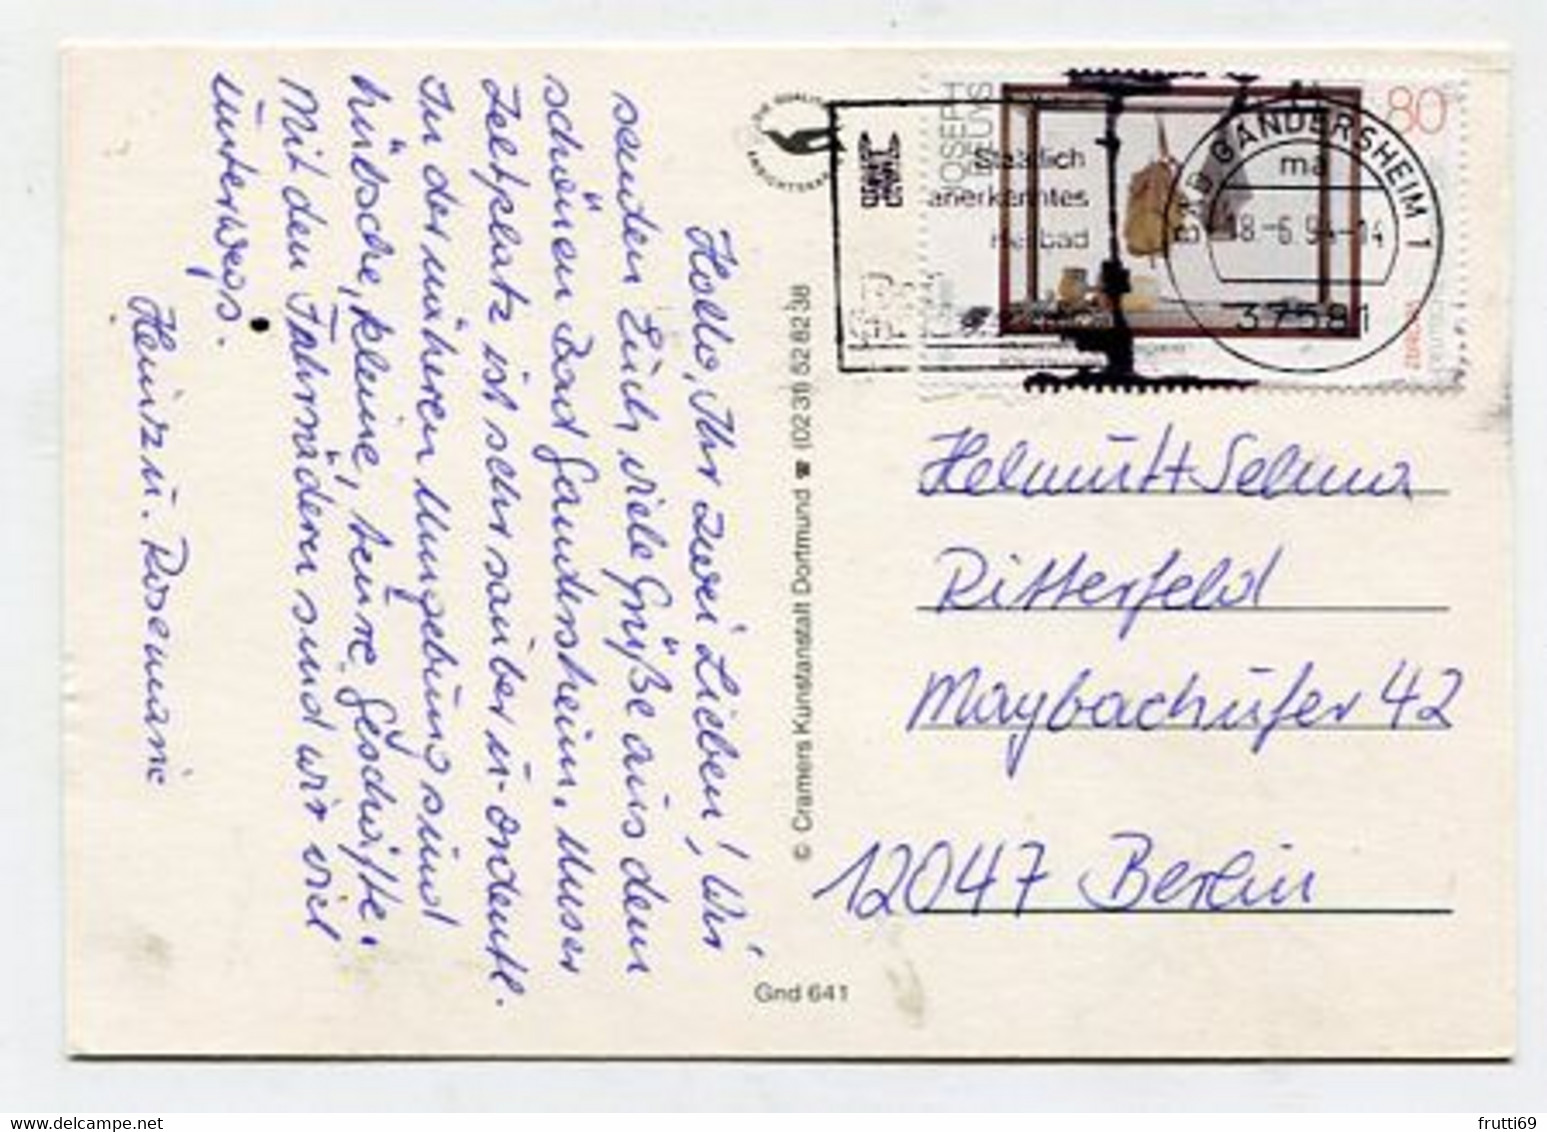 Hallo, Ihr zwei Lieben! Wir
senden Euch viele Grüße aus dem
schönen Bad Gandersheim. Unser
Zeltplatz ist sehr sauber u. ordentl.
In der näheren Umgebung sind
hübsche, kleine, teure Geschäfte.
Mit den Fahrrädern sind wir viel
unterwegs.
Heinz u. Rosemarie
© Cramers Kunstanstalt Dortmund ☎ (02 31) 52 82 38
Gnd 641
JOSEPH
BEUYS
80
Staatlich
anerkanntes
Heilbad
BAD GANDERSHEIM 1
ma
18.-6.94-14
37581
Helmut + Selma
Ritterfeld
Maybachufer 42
12047 Berlin
frutti69